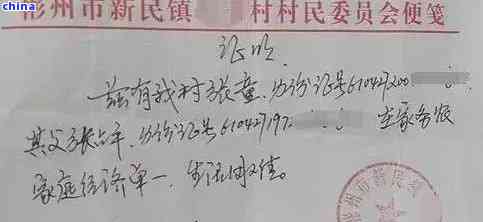 china
彬州市新民镇 村村民委员会便笺
证明
兹有我村张童,身份证号610427200
其父张占年,身份证号610427197 在家务农
家庭经济单一,生活困难。
彬州市新民镇